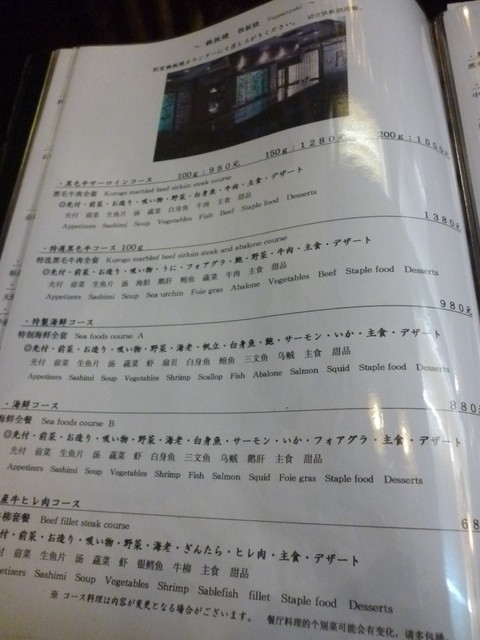 ～ 鉄板焼 铁板烧 Teppanyaki ～
・黒毛牛サーロインコース 100g：980元 150g：1280元 200g：1550元
黑毛牛肉全套 Kuroge marbled beef sirloin steak course
◎先付・前菜・お造り・吸い物・野菜・白身魚・牛肉・主食・デザート
先付 前菜 生鱼片 汤 蔬菜 白身鱼 牛肉 主食 甜品
Appetizers Sashimi Soup Vegetables Fish Beef Staple food Desserts
・特選黒毛牛コース 100g 1380元
特选黑毛牛肉全套 Kuroge marbled beef sirloin steak and abalone course
◎先付・前菜・お造り・吸い物・うに・フォアグラ・鮑・野菜・牛肉・主食・デザート
先付 前菜 生鱼片 汤 海胆 鹅肝 鲍鱼 蔬菜 牛肉 主食 甜品
Appetizers Sashimi Soup Sea urchin Foie gras Abalone Vegetables Beef Staple food Desserts
・特製海鮮コース 980元
特制海鲜全套 Sea foods course A
◎先付・前菜・お造り・吸い物・野菜・海老・帆立・白身魚・鮑・サーモン・いか・主食・デザート
先付 前菜 生鱼片 汤 蔬菜 虾 扇贝 白身鱼 鲍鱼 三文鱼 乌贼 主食 甜品
Appetizers Sashimi Soup Vegetables Shrimp Scallop Fish Abalone Salmon Squid Staple food Desserts
・海鮮コース 880元
海鲜全餐 Sea foods course B
◎先付・前菜・お造り・吸い物・野菜・海老・白身魚・サーモン・いか・フォアグラ・主食・デザート
先付 前菜 生鱼片 汤 蔬菜 虾 白身鱼 三文鱼 乌贼 鹅肝 主食 甜品
Appetizers Sashimi Soup Vegetables Shrimp Fish Salmon Squid Foie gras Staple food Desserts
産牛ヒレ肉コース 68
牛柳套餐 Beef fillet steak course
付・前菜・お造り・吸い物・野菜・海老・ぎんたら・ヒレ肉・主食・デザート
付 前菜 生鱼片 汤 蔬菜 虾 银鳕鱼 牛柳 主食 甜品
etizers Sashimi Soup Vegetables Shrimp Sablefish fillet Staple food Desserts
※ コース料理は内容が変更となる場合がございます。 餐厅料理的个别菜可能会有变化，请多包涵